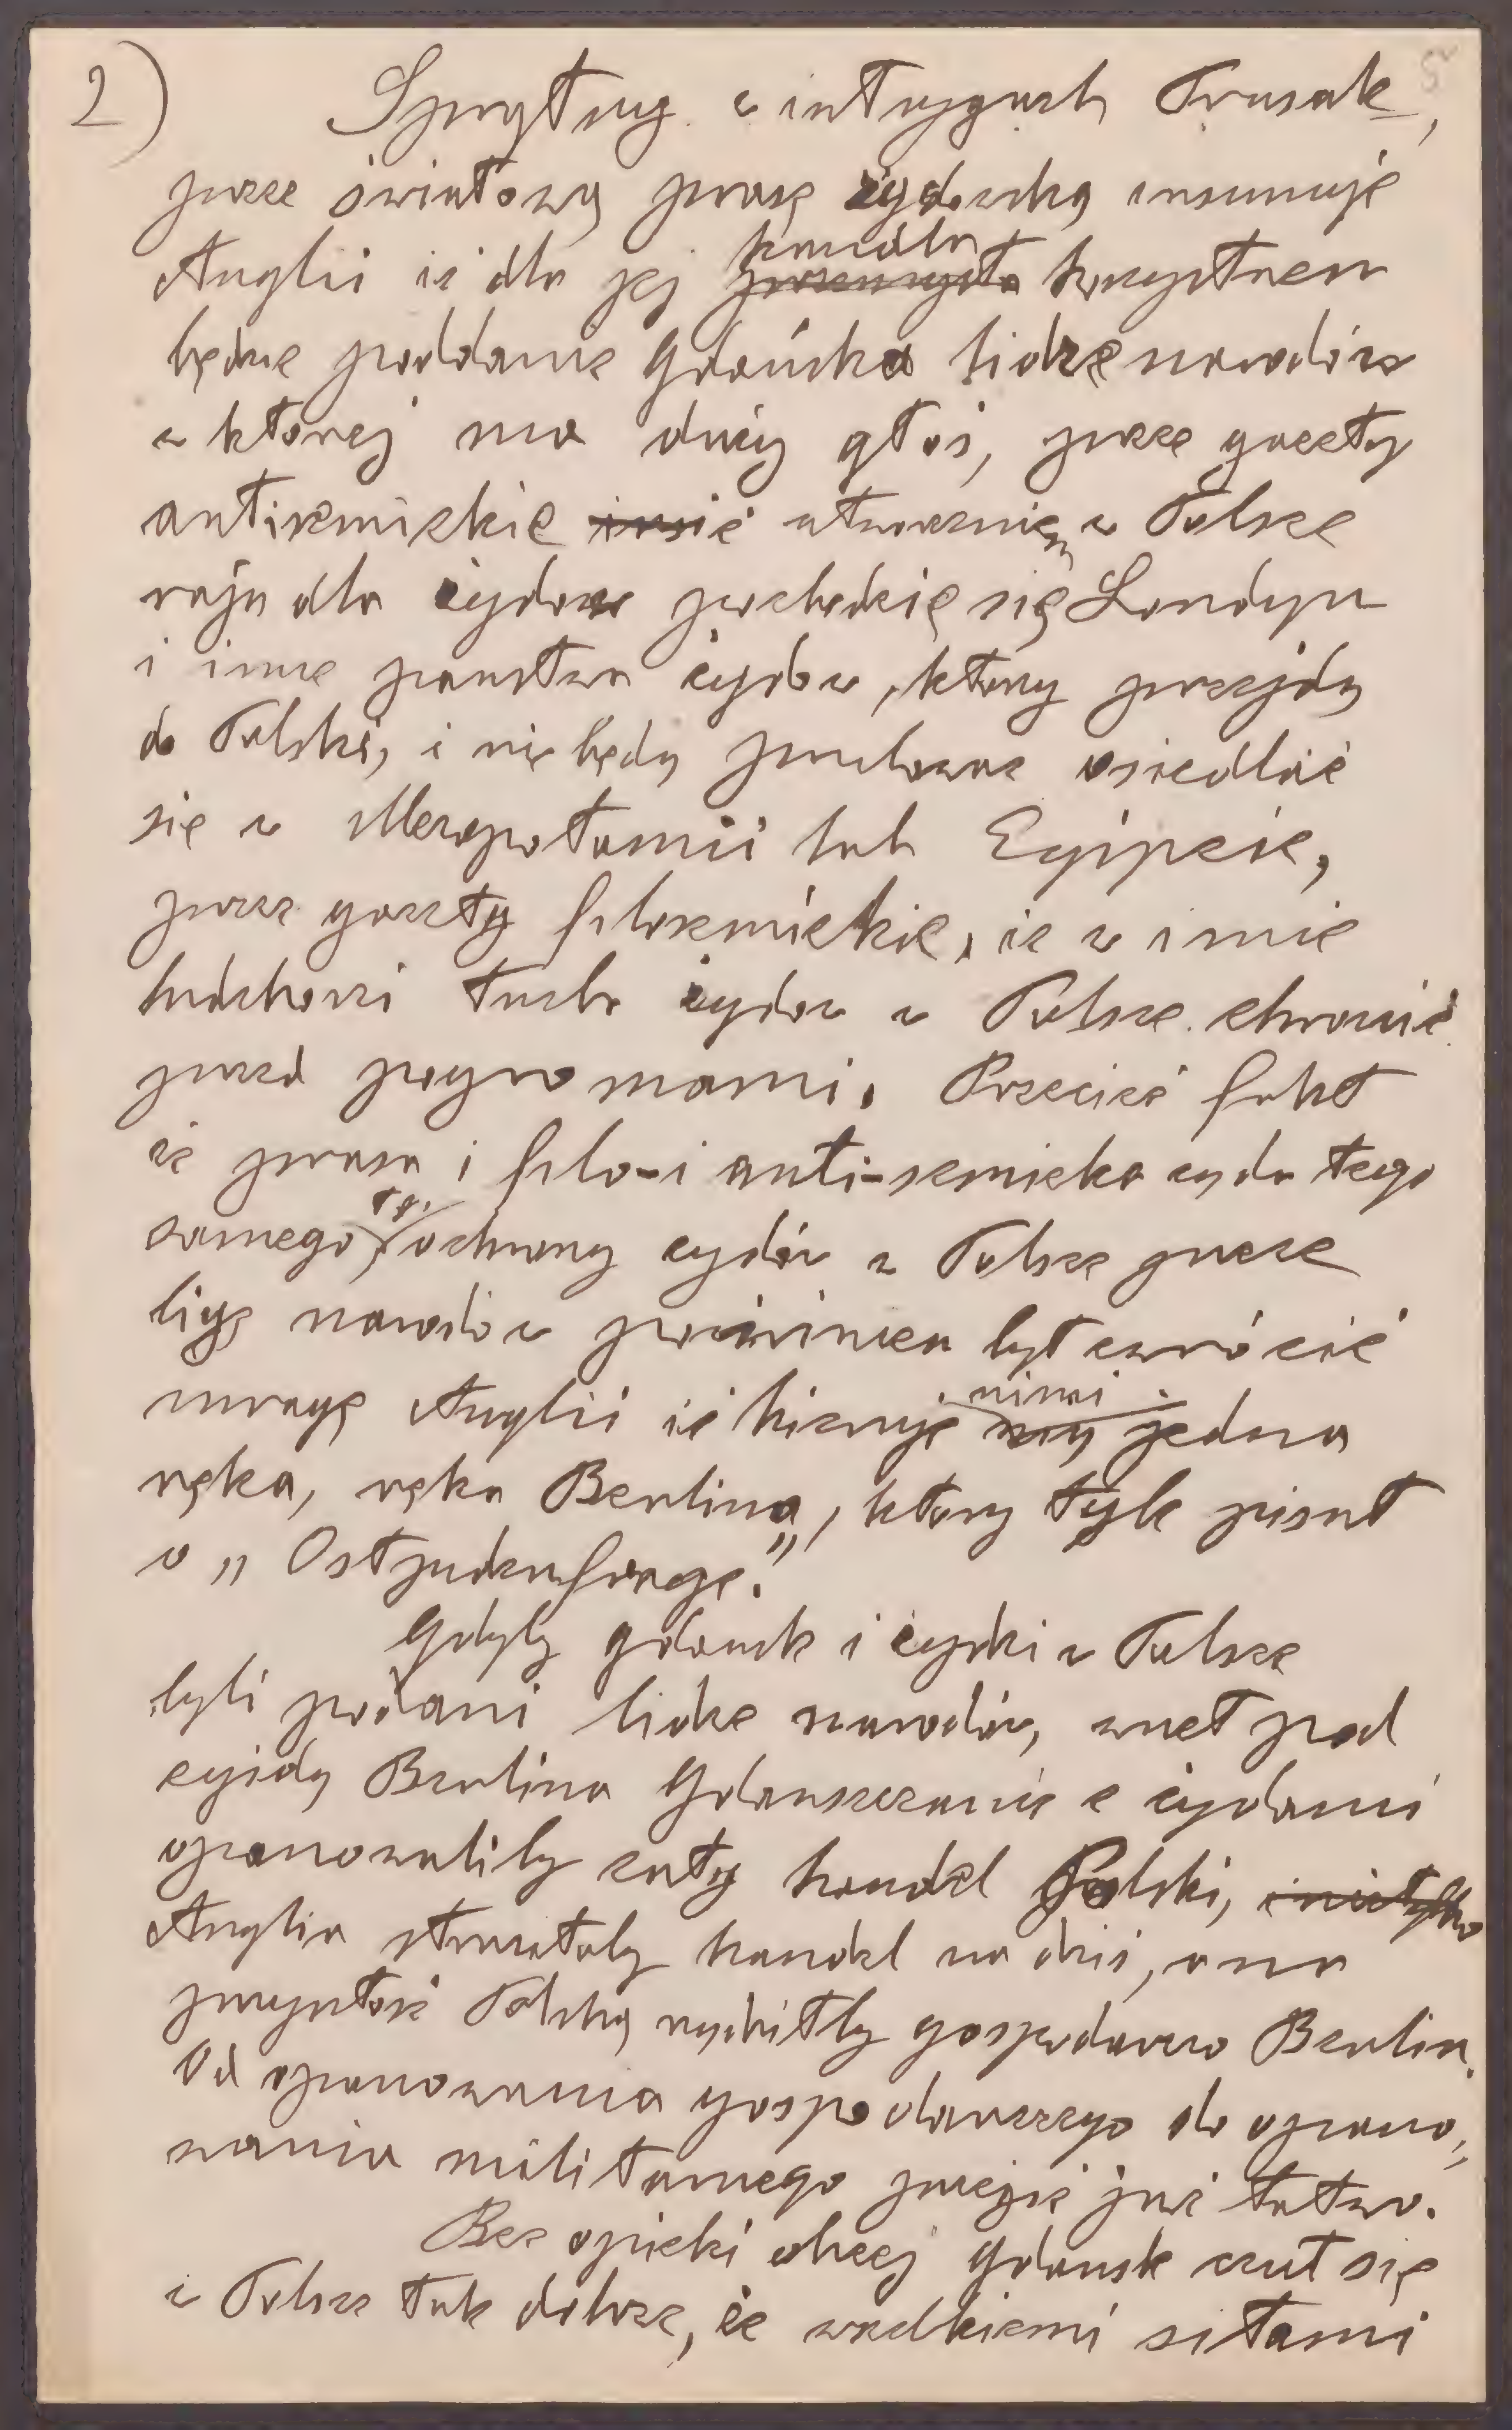 2) Sprytny w intrygach Prusak, 5
przez światową prasę żydowską insunuje
Anglii iż dla jej handlu przemysłu korzystnem
będzie poddanie Gdańska lidze narodów
w której ma duży głos, przez gazety
antisemickie iżsić utworzeniem w Polsce
raju dla żydow pozbędzie się Londyn
i inne panstwa żydow, ktorzy przejdą
do Polski, i nie będą probowac osiedlać
się w Mezopotamii lub Egipcie,
przez gazety filosemickie, iż w imie
ludzkosci trzeba żydow w Polsce chronić
przed pogromami. Przecież fakt
iż prasa i filo-i anti-semicka ząda tego
samego, tj. ochrony zydów w Polsce przez
ligę narodow powinien był zwrócić
uwagę Anglii iż kieruje nimi nią jedna
ręka, ręka Berlina, ktory tyle pisał
o „Ostjudenfrage."
Gdyby gdansk i żydzi w Polsce
byli poddani lidze narodów, wnet pod
egidą Berlina Gdanszczanie z żydami
opanowaliby cały handel Polski, i nietylko
Anglia straciłaby handel na dziś, a na
przyszłość Polskę wydziłby gospodarczo Berlin.
Od opanowania gospodarczego do opano„
wania militarnego przejście już łatwo.
Bez opieki obcej Gdansk czuł się
w Polsce tak dobrze, że wszelkiemi siłami